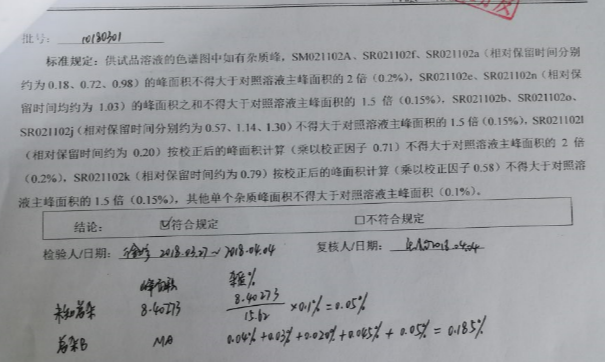 批号： 10180301
标准规定：供试品溶液的色谱图中如有杂质峰，SM021102A、SR021102f、SR021102a（相对保留时间分别
约为 0.18、0.72、0.98）的峰面积不得大于对照溶液主峰面积的 2 倍（0.2%），SR021102e、SR021102n（相对保
留时间均约为 1.03）的峰面积之和不得大于对照溶液主峰面积的 1.5 倍（0.15%），SR021102b、SR021102o、
SR021102j（相对保留时间分别约为 0.57、1.14、1.30）不得大于对照溶液主峰面积的 1.5 倍（0.15%），SR021102l
（相对保留时间约为 0.20）按校正后的峰面积计算（乘以校正因子 0.71）不得大于对照溶液主峰面积的 2 倍
（0.2%），SR021102k（相对保留时间约为 0.79）按校正后的峰面积计算（乘以校正因子 0.58）不得大于对照溶
液主峰面积的 1.5 倍（0.15%），其他单个杂质峰面积不得大于对照溶液主峰面积（0.1%）。
结论： ☑符合规定 □不符合规定
检验人/日期： 2018.03.27~2018.04.04 复核人/日期： 2018.04.04
峰面积 %
8.40273 8.40273/15.62 ×0.1%=0.05%
NA 0.04%+0.03%+0.020%+0.045%+0.05%=0.185%